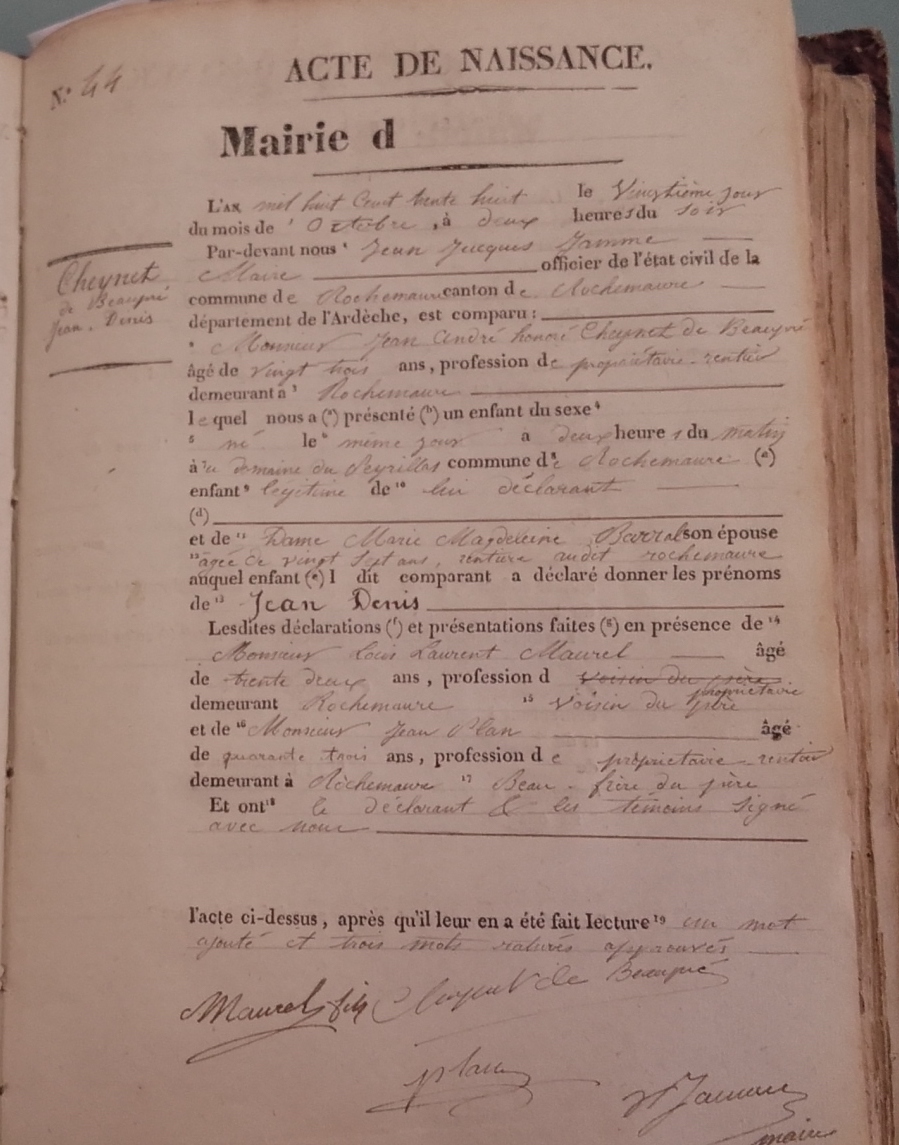 N.° 44
ACTE DE NAISSANCE.
Mairie d
L'AN mil huit Cent trente huit le Vingtième jour
du mois de ' Octobre , à deux heures du soir
Par-devant nous ' Jean Jacques Jamme
Maire officier de l'état civil de la
commune de Rochemaure canton de Rochemaure
département de l'Ardèche, est comparu :
Cheynet
de Beaupré
Jean-Denis
Monsieur Jean André honoré Cheynet de Beaupré
âgé de vingt trois ans, profession de propriétaire-rentier
demeurant à ³ Rochemaure
lequel nous a (ª) présenté (ᵇ) un enfant du sexe ⁴
⁵ né le ⁶ même jour a deux heures du matin
à ⁷ au domaine du Peyrillas commune d⁸e Rochemaure (ᵉ)
enfant ⁹ légitime de ¹⁰ lui déclarant
(d)
et de ¹¹ Dame Marie Magdeleine Barral son épouse
¹² agée de vingt sept ans, rentière audit rochemaure
auquel enfant (ᵉ) l dit comparant a déclaré donner les prénoms
de ¹³ Jean Denis
Lesdites déclarations (ᶠ) et présentations faites (ᵍ) en présence de ¹⁴
Monsieur Louis Laurent Maurel âgé
de trente deux ans, profession d voisin du père
propriétaire
demeurant Rochemaure ¹⁵ voisin du père
et de ¹⁶ Monsieur Jean Plan âgé
de quarante trois ans, profession de propriétaire-rentier
demeurant à Rochemaure ¹⁷ Beau-frère du père
Et ont ¹⁸ le déclarant & les témoins signé
avec nous
l'acte ci-dessus, après qu'il leur en a été fait lecture ¹⁹ un mot
ajouté et trois mots raturés approuvés
Maurel fils Cheynet de Beaupré
Plan
Jamme
maire